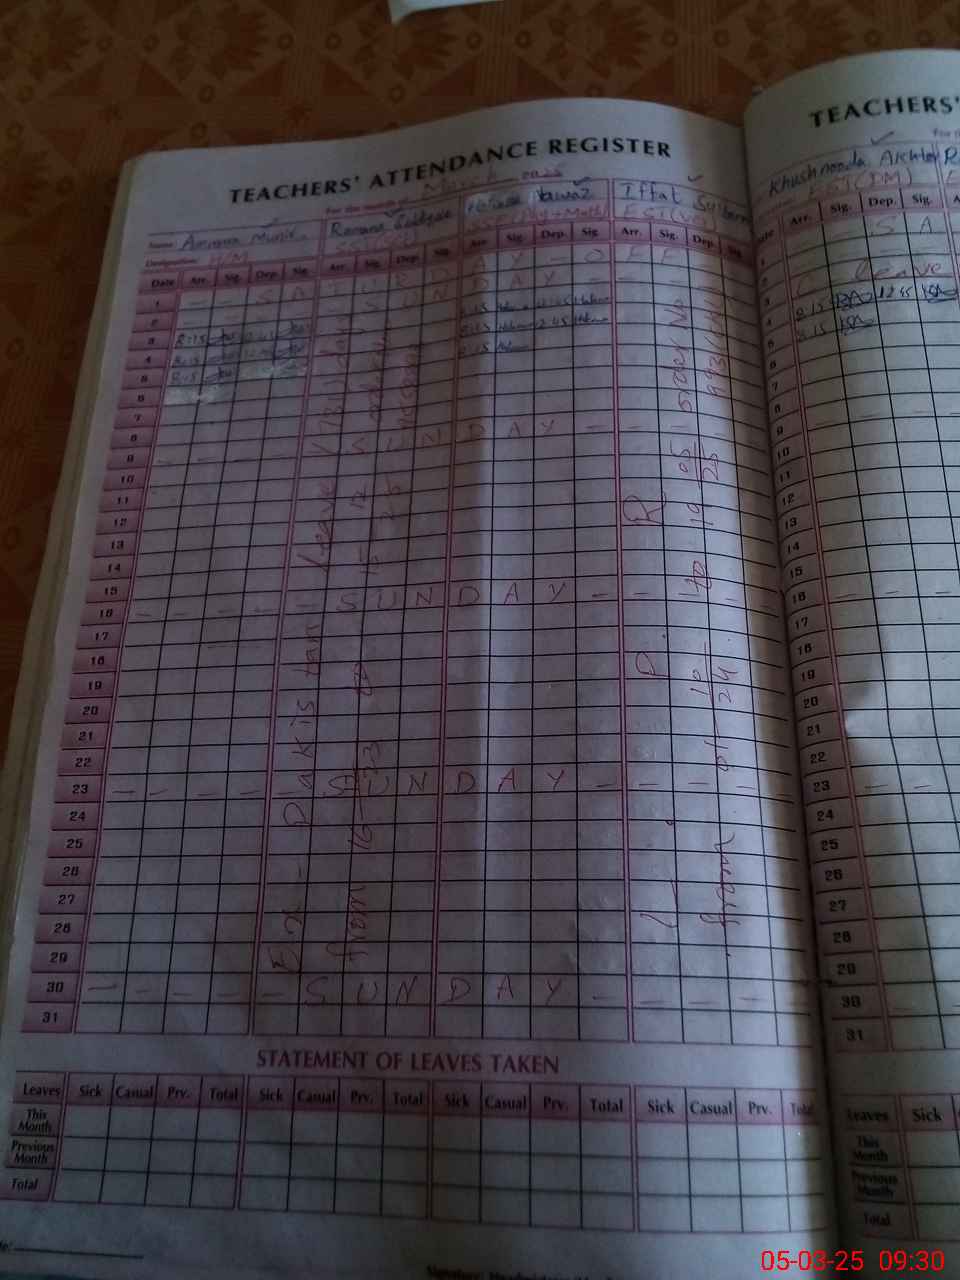 TEACHERS' ATTENDANCE REGISTER
For the month of March 2025
Name Amina Munir Romana Iffat
Designation: H/M SST(Sci) EST
Date Arr. Sig. Dep. Sig. Arr. Sig. Dep. Sig. Arr. Sig. Dep. Sig. Arr. Sig. Dep. Sig.
1 - - S A T U R D A Y - O F F
2 S U N D A Y
3 8:15 12:45 8:15 12:45
4 8:15 8:15 12:45
5 8:15 8:15
6
7
8
9 - - S U N D A Y - -
10
11
12
13
14
15
16 - - - - - S U N D A Y - - -
17
18
19
20
21
22
23 - - - - S U N D A Y - - - -
24
25
26
27
28
29
30 - - - - - S U N D A Y - - - -
31
Ex - Pakistan leave (731) days
from 16-12-23 to 15-12-25
L P R
from 01-10-24 to 19-05-25 order No
STATEMENT OF LEAVES TAKEN
Leaves Sick Casual Prv. Total Sick Casual Prv. Total Sick Casual Prv. Total Sick Casual Prv. Total
This Month
Previous Month
Total
TEACHERS'
Khushnooda Akhter
EST(DM)
Date Arr. Sig. Dep. Sig.
1 - - S A
2
3 leave
4 8:15 12:45
5 8:15
6
7
8
9 - - - -
10
11
12
13
14
15
16 - - - -
17
18
19
20
21
22
23 - -
24
25
26
27
28
29
30
31
Leaves Sick
This Month
Previous Month
Total
05-03-25 09:30